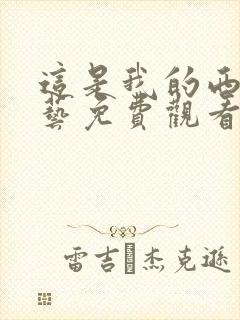 這是我的
藝免費觀看
雷吉 杰克遜